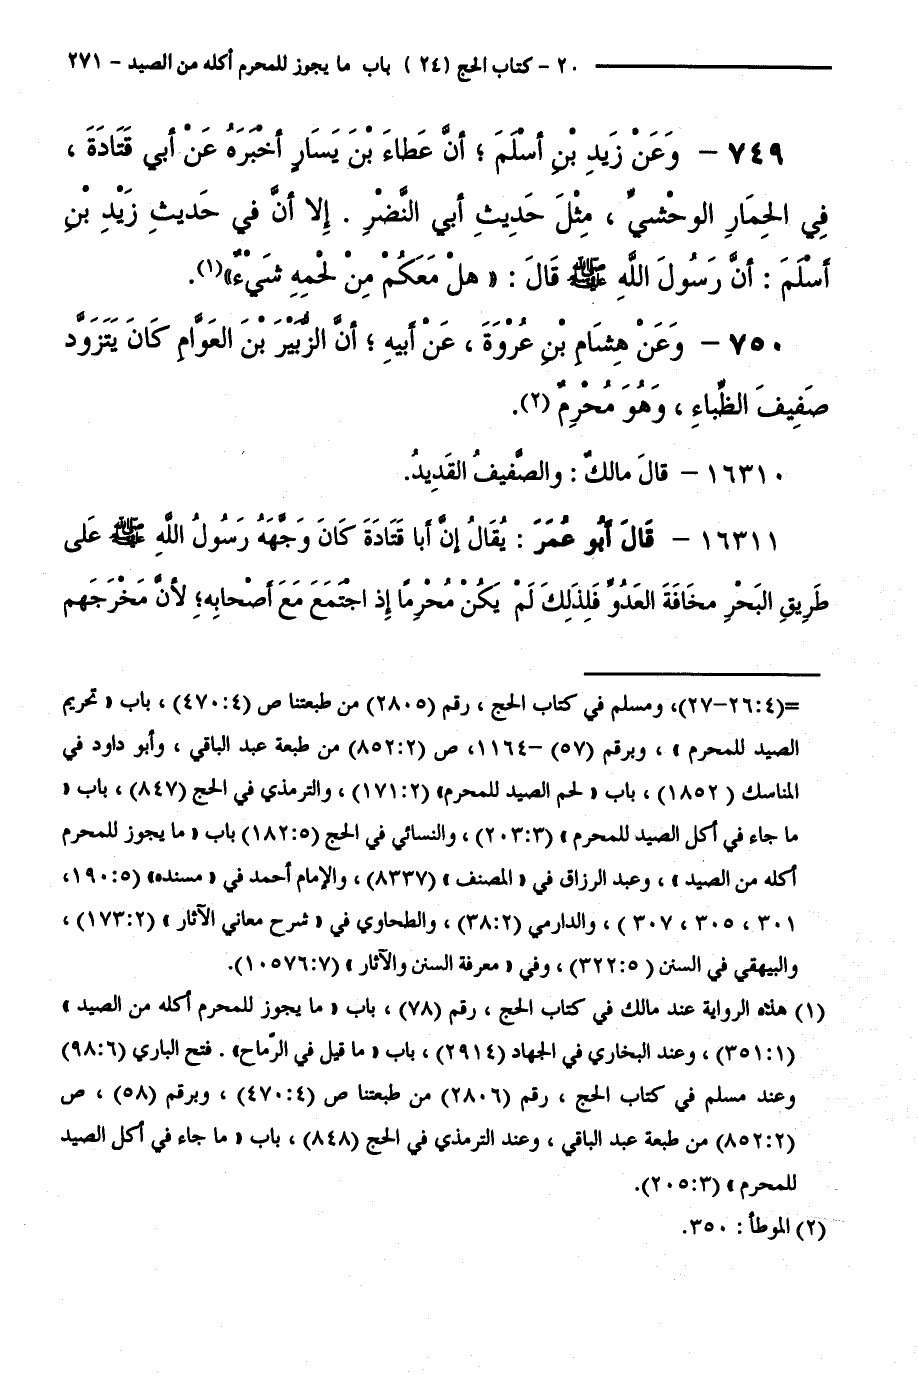 ٢٠ - كتاب الحج (٢٤) باب ما يجوز للمحرم أكله من الصيد - ٢٧١
٧٤٩ - وَعَنْ زَيدِ بْنِ أسْلَمَ ؛ أنَّ عَطاءَ بْنَ يَسَارٍ أخْبَرَهُ عَنْ أبي قَتَادَةَ ،
فِي الحِمَارِ الوحْشيِّ ، مِثْلَ حَدِيثِ أبي النَّضْرِ . إلا أنَّ في حَديثِ زَيْدِ بْنِ
أسْلَمَ : أنَّ رَسُولَ اللَّهِ ﷺ قَالَ : « هلْ مَعَكُمْ مِنْ لحْمِهِ شَيْءٌ»(١).
٧٥٠ - وَعَنْ هِشَامِ بْنِ عُرْوَةَ ، عَنْ أبيهِ ؛ أنَّ الزُّبَيْرَ بْنَ العَوَّامِ كَانَ يَتَزَوَّد
صَفِيفَ الظِّباءِ ، وَهُوَ مُحْرِمٌ (٢).
١٦٣١٠ - قالَ مالكٌ : والصَّفيفُ القَدِيدُ.
١٦٣١١ - قَالَ أَبُو عُمَرَ : يُقَالُ إنَّ أبا قَتَادَةَ كَانَ وَجَّهَهُ رَسُولُ اللَّهِ ﷺ عَلى
طَرِيقِ البَحْرِ مخَافَةَ العَدُوِّ فَلِذَلِكَ لَمْ يَكُنْ مُحْرِمًا إذ اجْتَمَعَ مَعَ أصْحابِهِ؛ لأنَّ مَخْرَجَهم
=(٢٦:٤-٢٧)، ومسلم في كتاب الحج ، رقم (٢٨٠٥) من طبعتنا ص (٤٧٠:٤) ، باب « تحريم
الصيد للمحرم » ، وبرقم (٥٧) -١١٦٤، ص (٨٥٢:٢) من طبعة عبد الباقي ، وأبو داود في
المناسك ( ١٨٥٢) ، باب « لحم الصيد للمحرم» (١٧١:٢) ، والترمذي في الحج (٨٤٧) ، باب «
ما جاء في أكل الصيد للمحرم » (٢٠٣:٣) ، والنسائي في الحج (١٨٢:٥) باب « ما يجوز للمحرم
أكله من الصيد » ، وعبد الرزاق في « المصنف » (٨٣٣٧) ، والإمام أحمد في « مسنده» (١٩٠:٥،
٣٠١ ، ٣٠٥ ، ٣٠٧ ) ، والدارمي (٣٨:٢) ، والطحاوي في « شرح معاني الآثار » (١٧٣:٢) ،
والبيهقي في السنن ( ٣٢٢:٥) ، وفي « معرفة السنن والآثار » (١٠٥٧٦:٧).
(١) هذه الرواية عند مالك في كتاب الحج ، رقم (٧٨) ، باب « ما يجوز للمحرم أكله من الصيد »
(٣٥١:١) ، وعند البخاري في الجهاد (٢٩١٤) ، باب « ما قيل في الرّماح» . فتح الباري (٩٨:٦)
وعند مسلم في كتاب الحج ، رقم (٢٨٠٦) من طبعتنا ص (٤٧٠:٤) ، وبرقم (٥٨) ، ص
(٨٥٢:٢) من طبعة عبد الباقي ، وعند الترمذي في الحج (٨٤٨) ، باب « ما جاء في أكل الصيد
للمحرم » (٢٠٥:٣).
(٢) الموطأ : ٣٥٠.